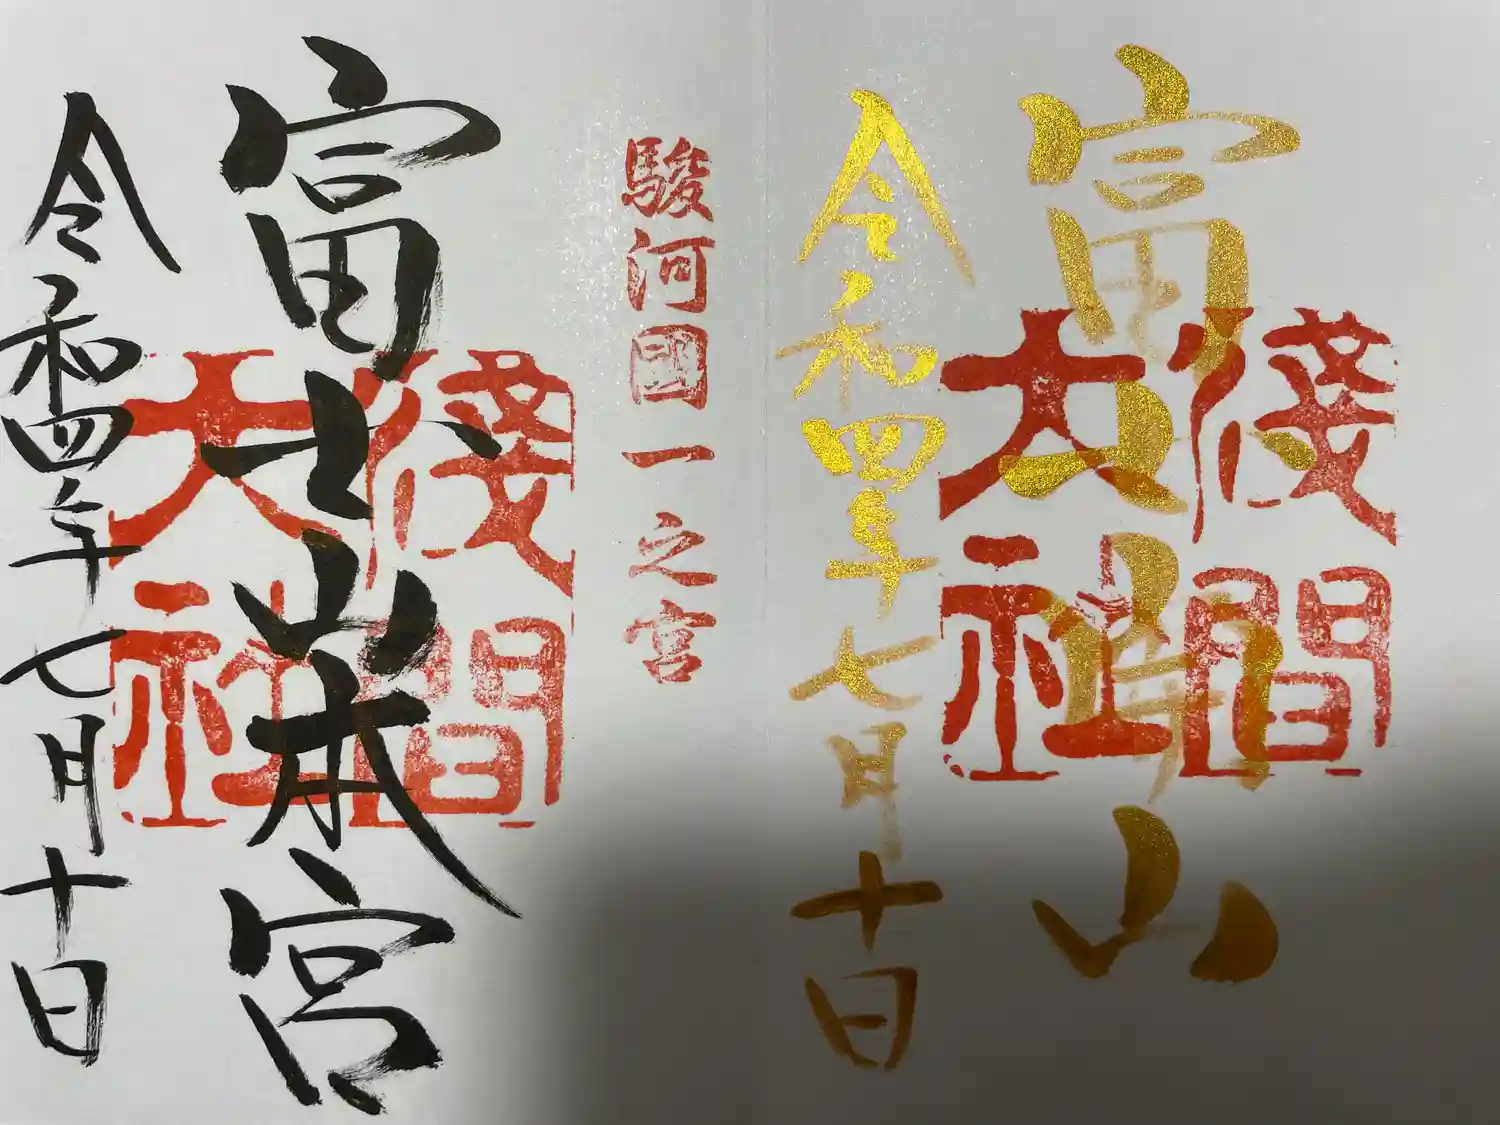 富士開山
淺間
大社
令和四年七月十日
駿河國一之宮
富士山本宮
淺間
大社
令和四年七月十日